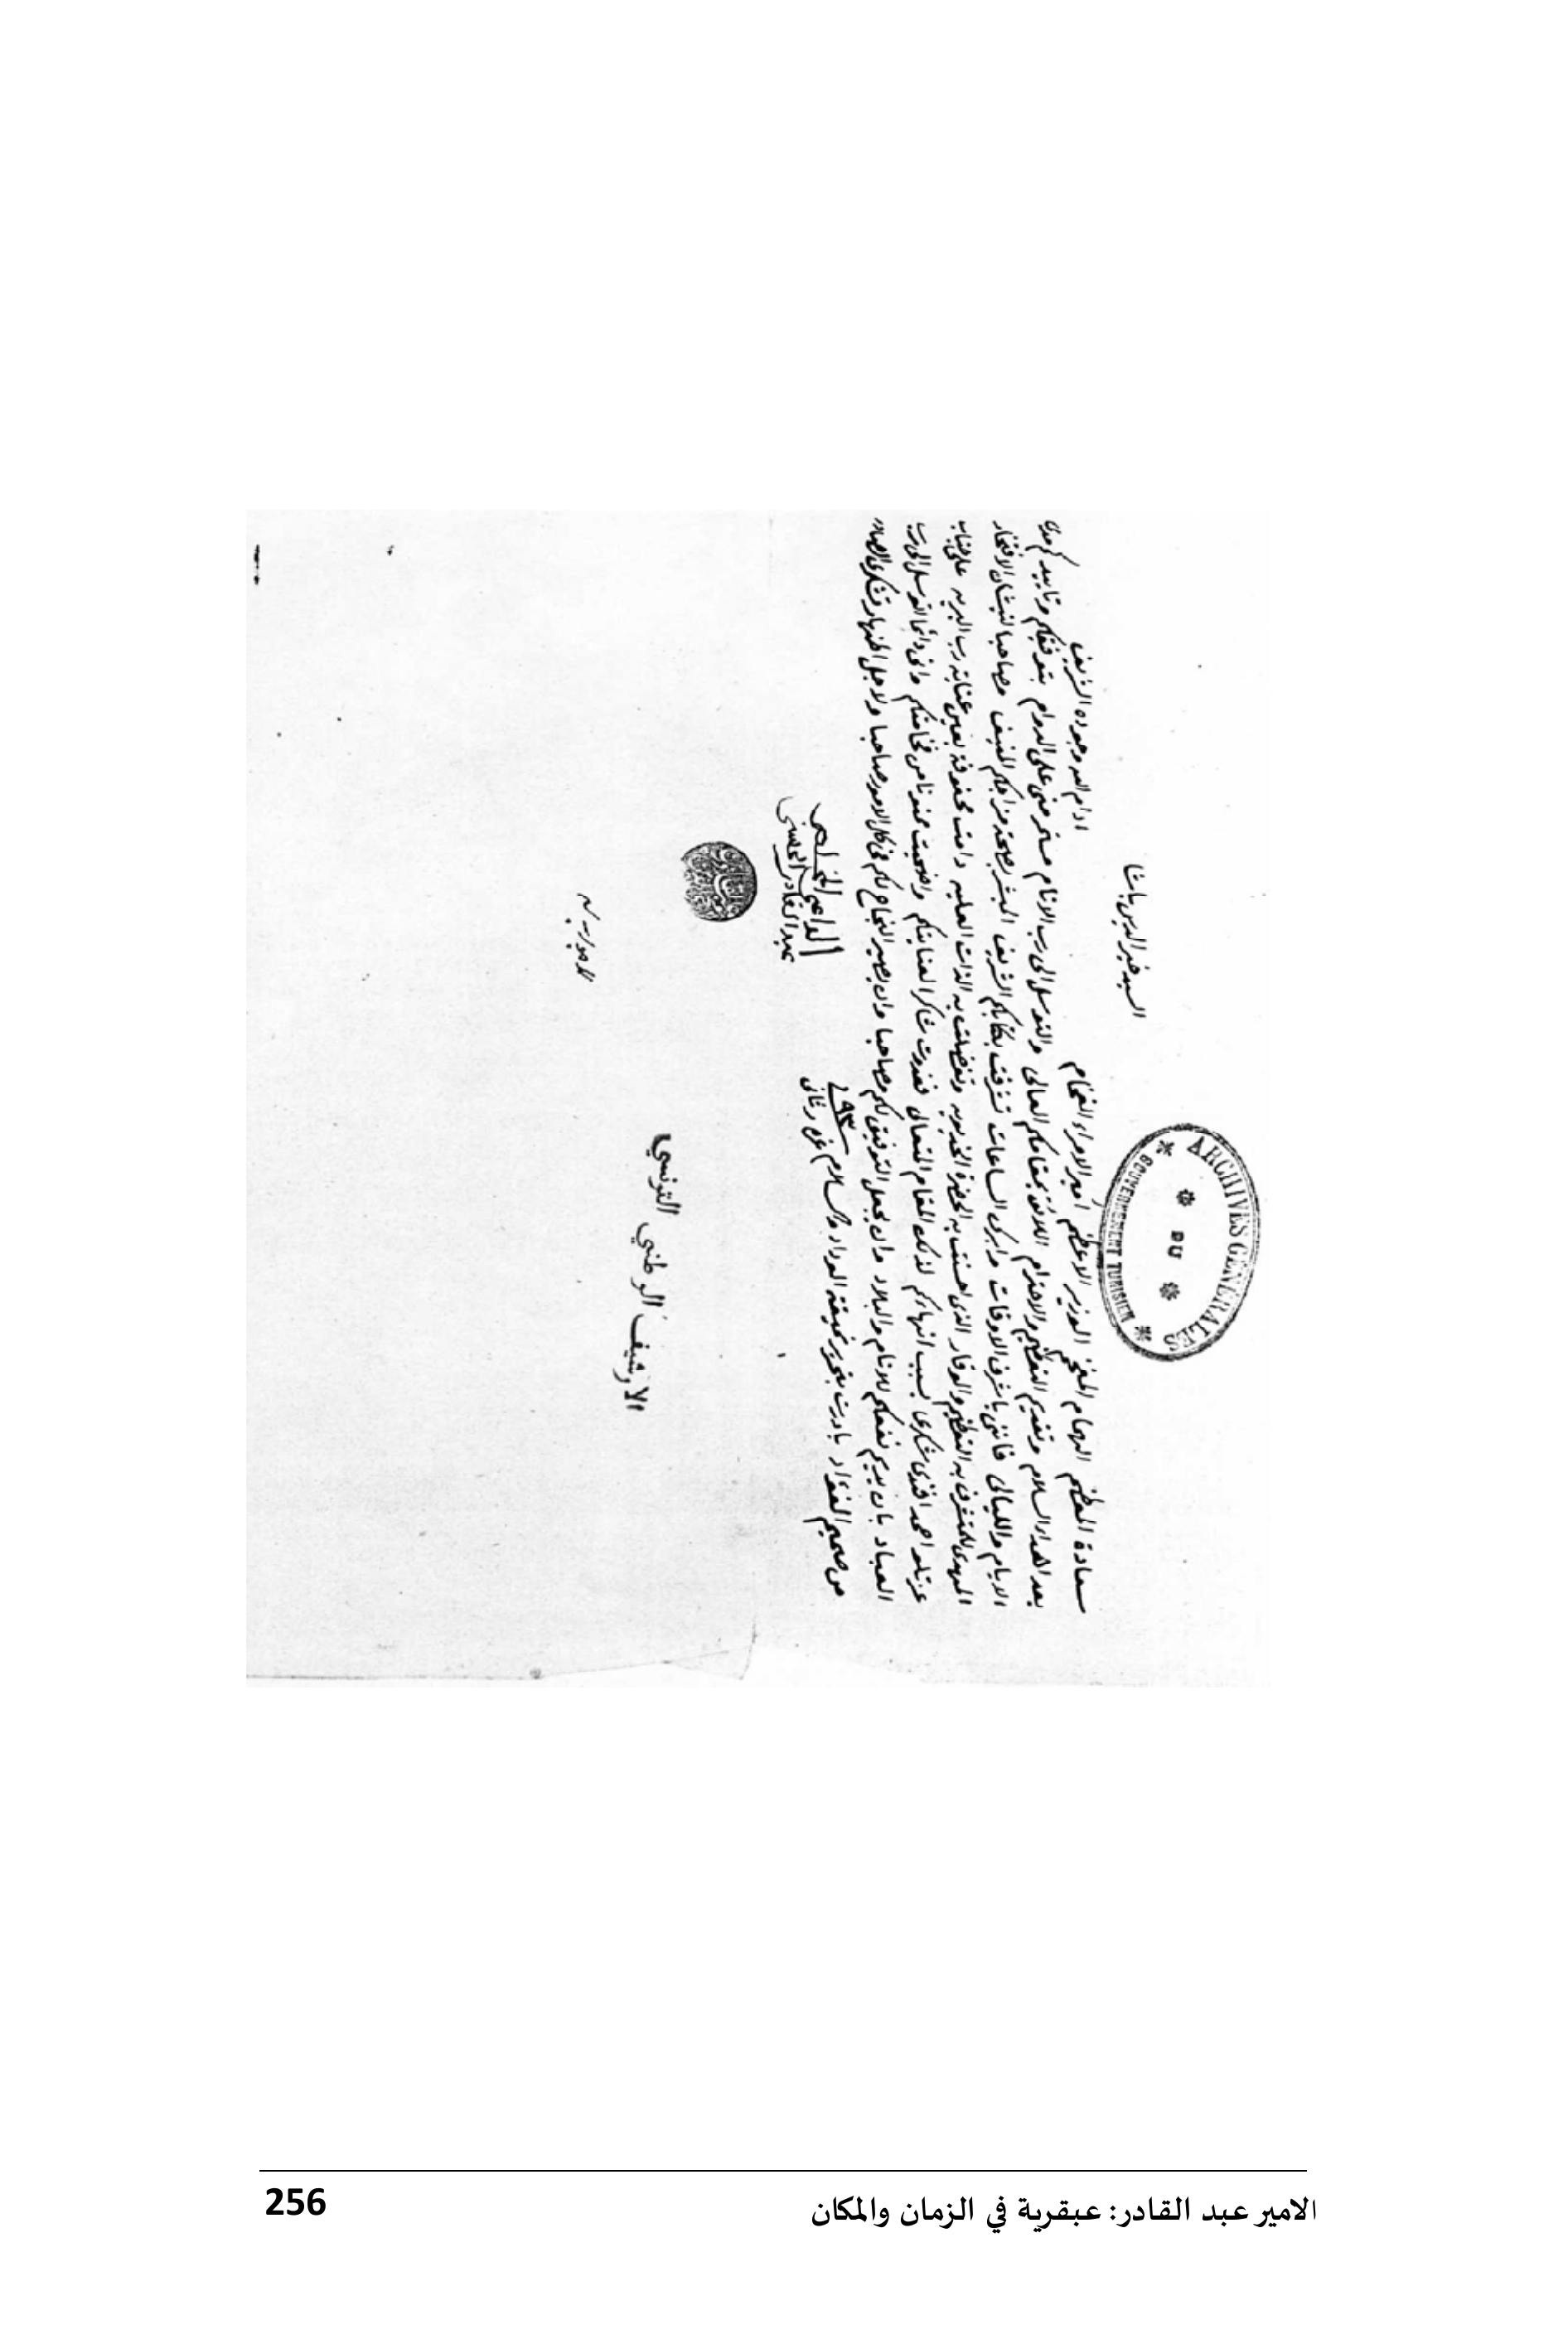 السيد خير الدين باشا
ARCHIVES GENERALES
DU
GOUVERNEMENT TUNISIEN
سعادة المعظم الهمام المفخم الوزير الاعظم أمير الامراء الفخام ادام الله وجوده الشريف
بعد اهداء السلام وتقديم التعظيم والاحترام اللائق بمقامكم العالي والتوسل الى رب الانام مستمر مني على الدوام بتوفيقكم وتاييدكم مدى
الايام والليالي فانني باشرف الاوقات وابرك الساعات تشرفت بكتابكم الشريف المبشر بصحة مزاجكم المنيف مصاحبا لنيشان الافتخار
المهدى للمتشرف به التعظيم والوقار الذي احسنت به الحضرة الخديويه وتفضلت به الذات العليه دامت محفوفة بعين عناية رب البريه على
عزتلو احمد افندي شكري بسبب انهائكم لذلك المقام المتعالي فغدوت شاكرا لعنايتكم واضحيت ممنونا من فخامتكم واني دائما اتوسل الى رب
العباد بان يديم نفعكم للانام والبلاد وان يجعل التوفيق لكم مصاحبا وان يصير النجاح لكم في كل الامور صاحبا ولاجل اظهار تشكري الصادر
من صميم الفؤاد بادرت بتحرير نميقة الوداد والسلام غرة ر ثاني ٢٩٣
الداعي المخلص
عبد القادر الحسني
الارشيف الوطني التونسي
الامير عبد القادر: عبقرية في الزمان والمكان
256